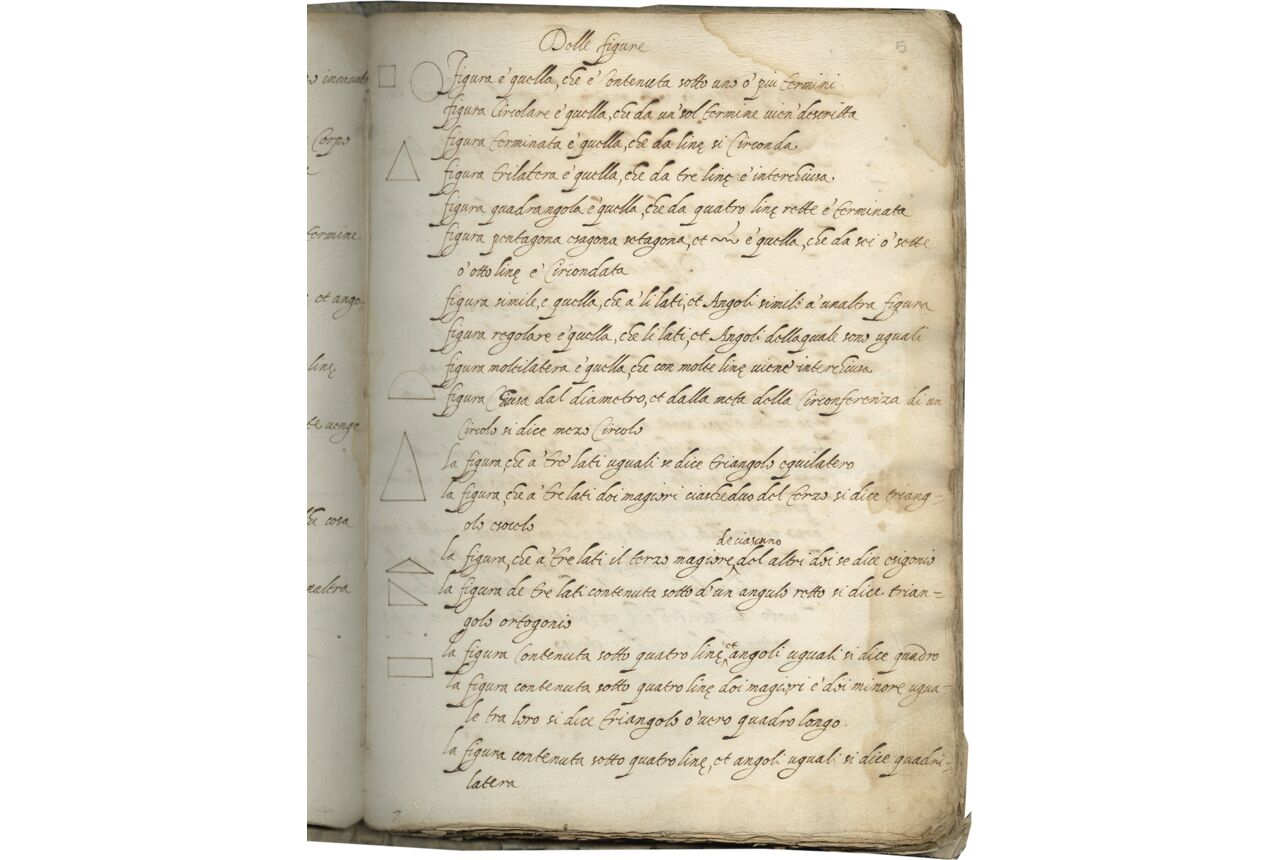 Delle figure
5
figura è quella, che è Contenuta sotto uno ò piu termini.
figura Circolare è quella, che da un' sol termine uien' descritta
figura terminata è quella, che da linę si Circonda
figura trilatera è quella, che da tre linę è interchiusa
figura quadrangola è quella, che da quatro linę rette è terminata
figura pentagona esagona setagona, et è quella, che da sei ò sette
ò otto linę è Circondata
figura simile, e quella, che à li lati, et Angoli simili à unaltra figura
figura regolare è quella, che li lati, et Angoli della quale sono uguali
figura moltilatera è quella, che con molte linę uiene interchiusa
figura Chiusa dal diametro, et dalla meta della Circonferenza di un
Circolo si dice mezo Circolo
la figura, che à tre lati uguali se dice triangolo equilatero
la figura, che à tre lati doi magiori ciascheduo del terzo si dice triang=
olo esocelo
de ciascuno
la figura, che à tre lati il terzo magiore, del altri doi se dice osigonio
la figura de tre lati contenuta sotto d'un angulo retto si dice trian=
golo ortogonio
la figura Contenuta sotto quatro linę et angoli uguali si dice quadro
la figura contenuta sotto quatro linę doi magiori è doi minore ugua=
le tra loro si dice triangolo ò uero quadro longo.
la figura contenuta sotto quatro linę, et angoli uguali si dice quadri=
latera
incauato
Corpo
termine
et ango=
linę
te uenge
che cosa
naltra